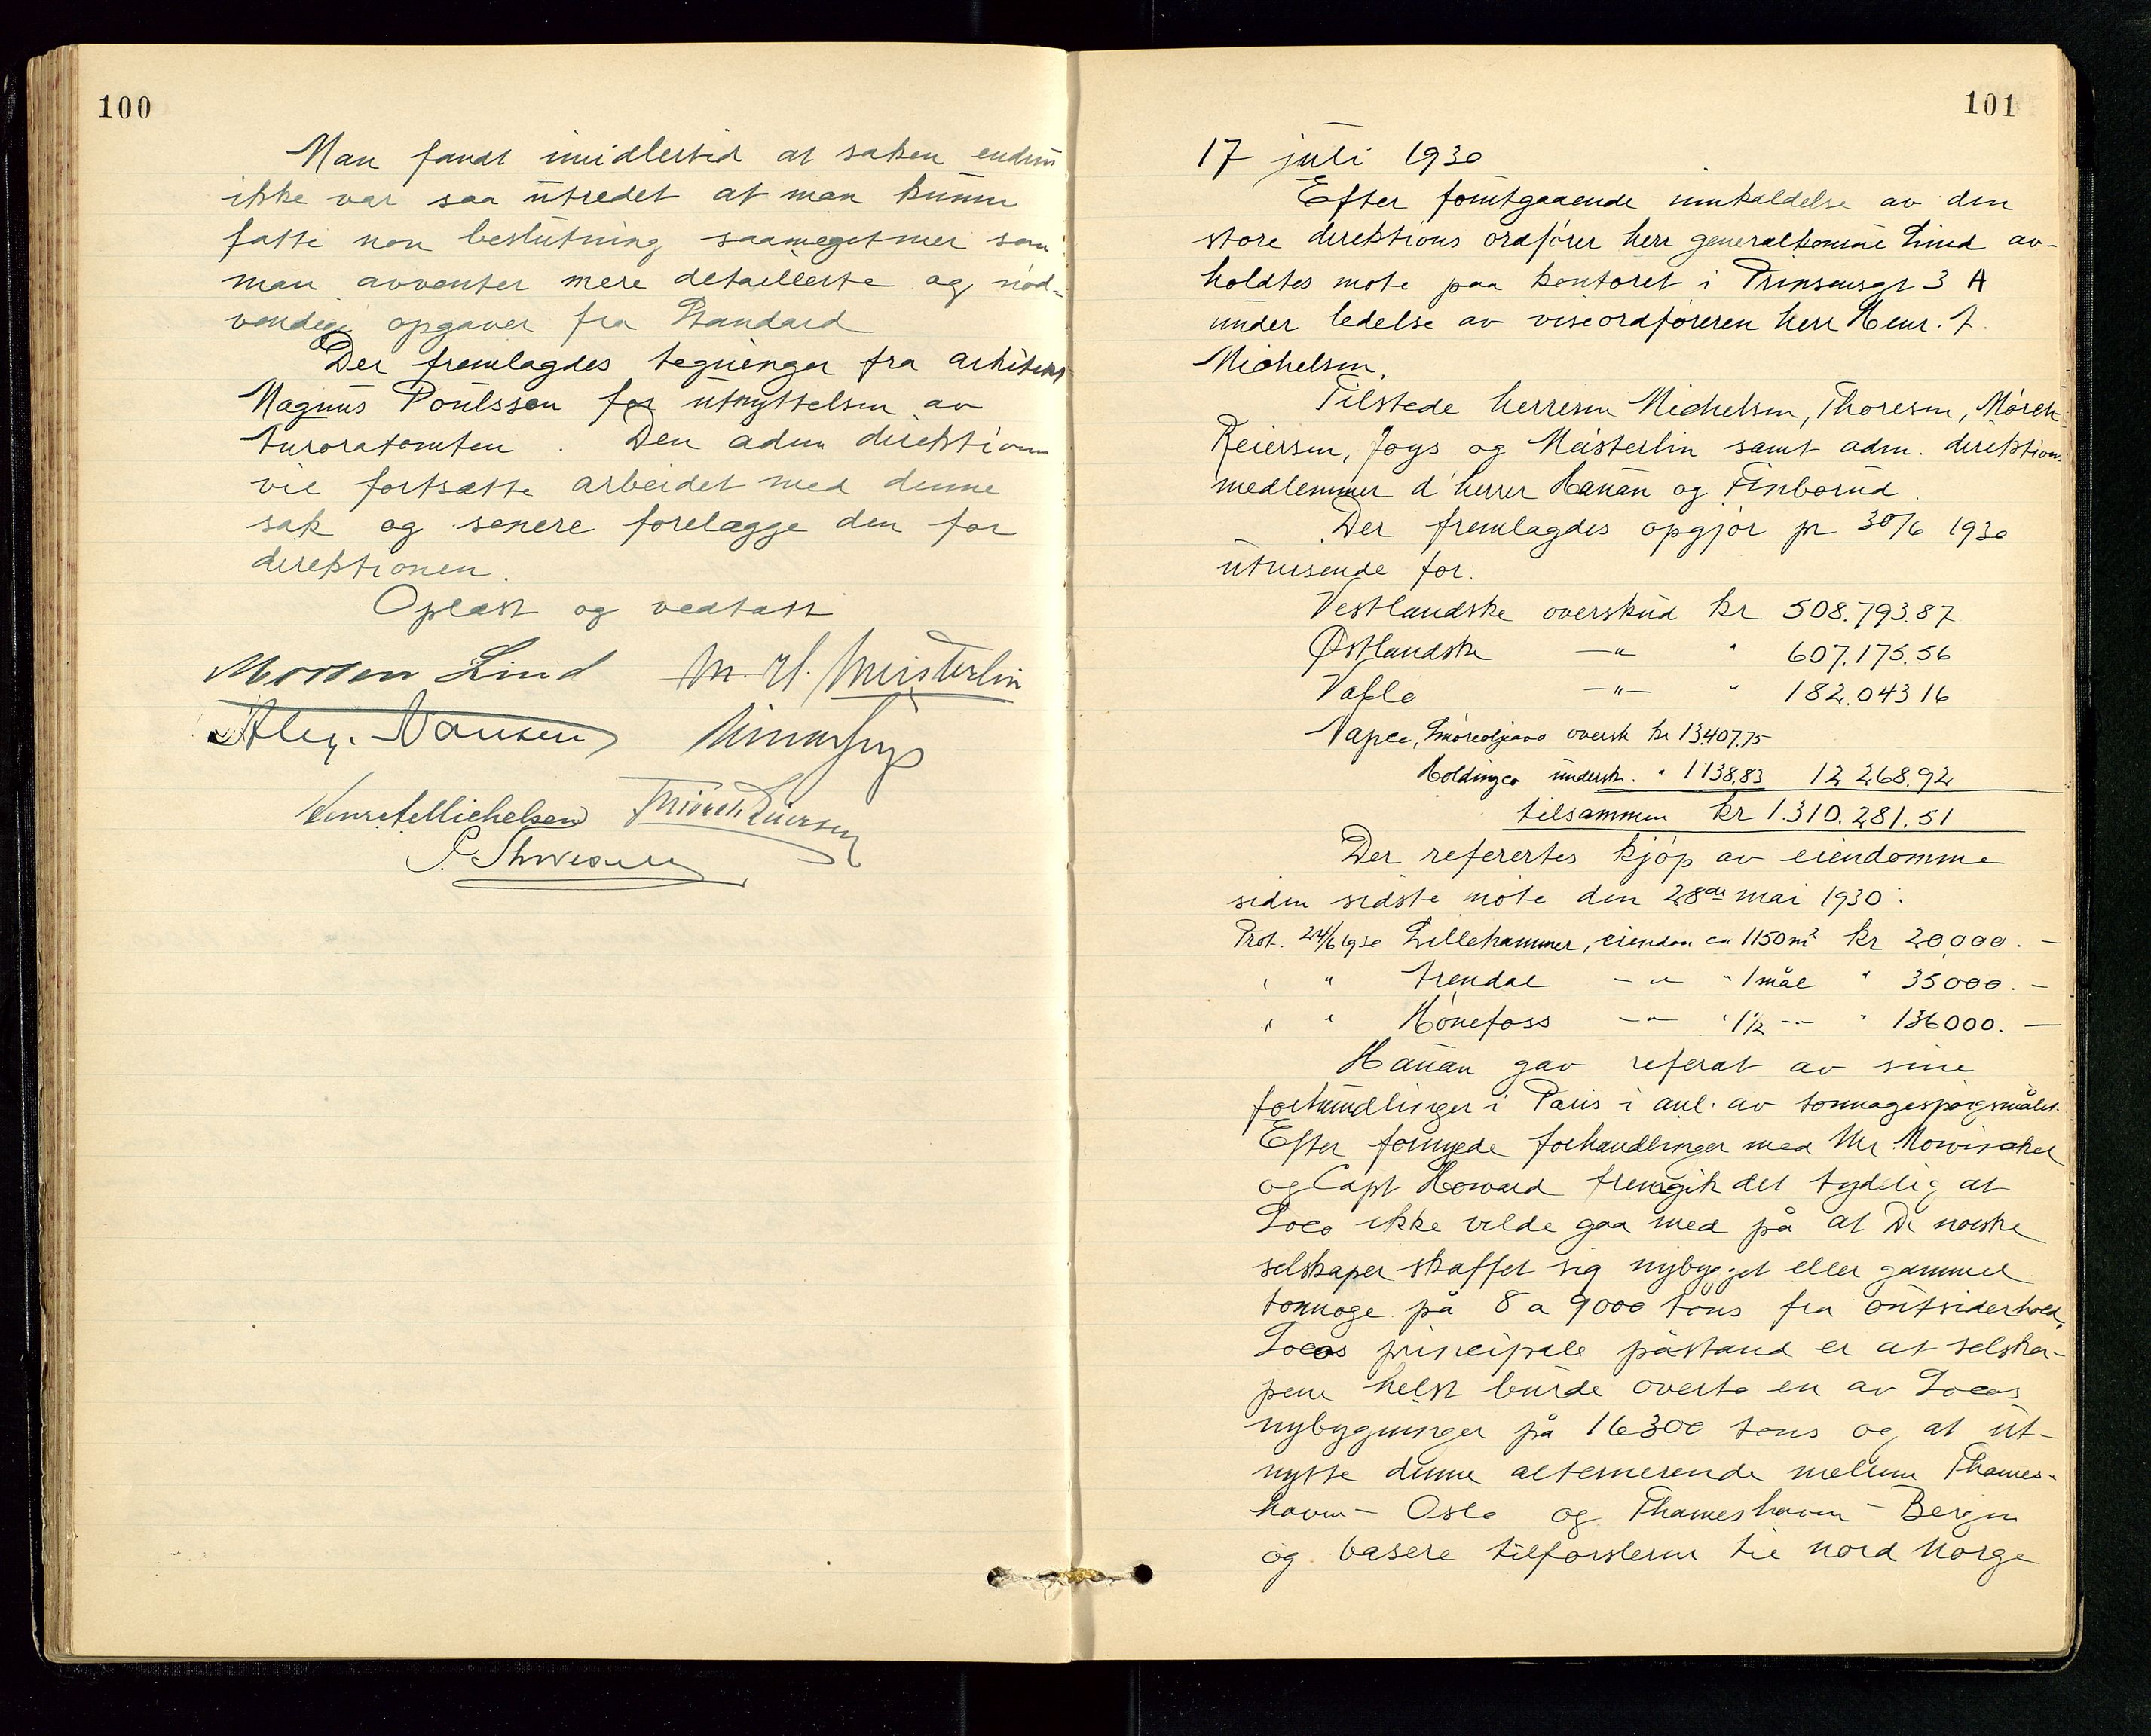 100
Man fandt imidlertid at saken endnu
ikke var saa utredet at man kunne
fatte noen beslutning saameget mer som
man avventer mere detaillerte og nød-
vendige opgaver fra Standard
Der fremlagdes tegninger fra arkitekt
Magnus Poulsson for utnyttelsen av
Auroratomten. Den adm direktionen
vil fortsætte arbeidet med denne
sak og senere forelægge den for
direktionen.
Oplæst og vedtatt
Morten Lind M. H. Meisterlin
Alex. Nansen
Henr. f. Michelsen Mörch Reiersen
P. Thoresen
101
17 juli 1930
Efter forutgaaende innkaldelse av den
store direktions ordfører herr generalkonsul Lind av-
holdtes møte paa kontoret i Prinsensgt 3 A
under ledelse av viseordføreren herr Henr. f.
Michelsen.
Tilstede herrerne Michelsen, Thoresen, Mörch-
Reiersen, Joys og Meisterlin samt adm. direktions
medlemmer d'herrer Hauan og Finborud.
Der fremlagdes opgjør pr 30/6 1930
utvisende for.
Vestlandske overskud kr 508.793.87
Østlandske —"— " 607.175.56
Vallo —"— " 182.043 16
Napce, Smøreoljeavd oversk kr 13407.75
Holdingco undersk. " 1138,83 12 268.92
tilsammen kr 1.310.281.51
Der referertes kjøp av eiendomme
siden sidste møte den 28de mai 1930:
Prot. 24/6 1930 Lillehammer, eiendom ca 1150 m² kr 20,000. —
" " Arendal — " — " 1 mål " 35000. —
" " Hønefoss — " — " 1½ -"- " 136000. —
Hauan gav referat av sine
forhandlinger i Paris i anl. av tonnagespørgsmålet.
Efter fornyede forhandlinger med Mr.
og Capt Howard fremgik det tydelig at
Soco ikke vilde gaa med på at De norske
selskaper skaffet sig nybygget eller gammel
tonnage på 8 a 9000 tons fra outsiderhold.
Socos principale påstand er at selska-
pene helst burde overta en av Socos
nybygninger på 16300 tons og at ut-
nytte denne alternerende mellem Thames-
haven — Oslo og Thameshaven — Bergen
og basere tilførslerne til nord Norge